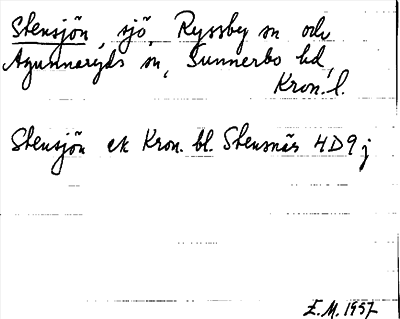 Stensjön, sjö, Ryssby sn och
Agunnaryds sn, Sunnerbo hd,
Kron. l.
Stensjön ek Kron. bl. Stensnäs 4D9j
E.M. 1957